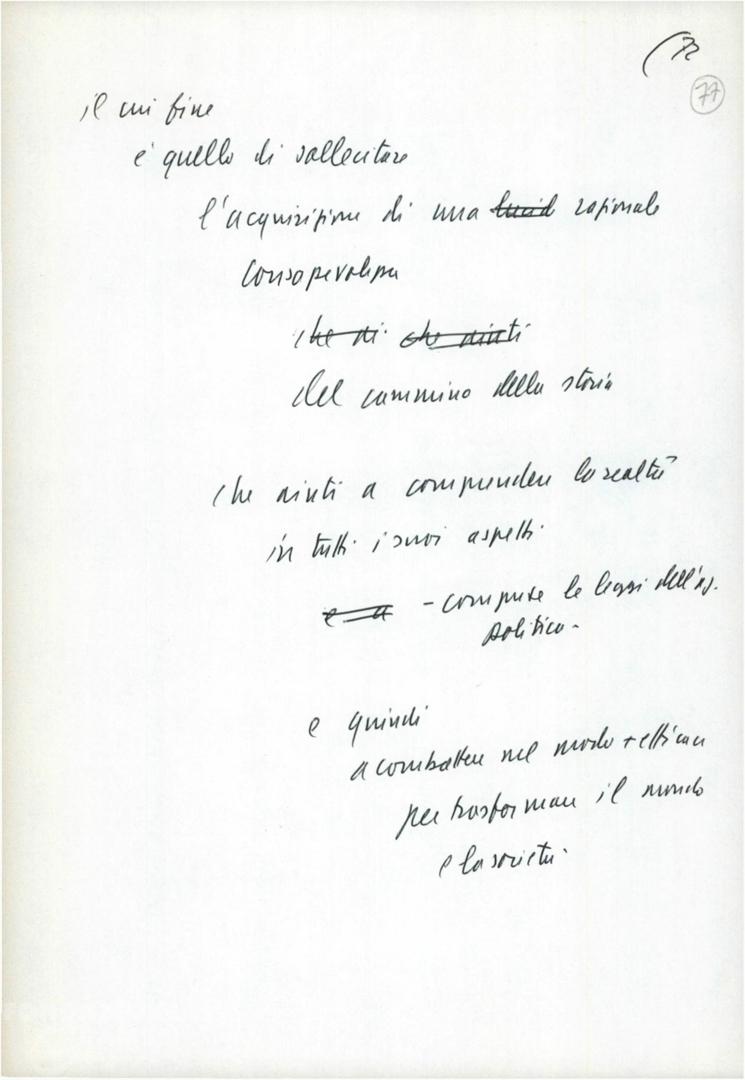 (72
77
il cui fine
è quello di sollecitare
l'acquisizione di una lucid razionale
consapevolezza
che di che aiuti
del cammino della storia
che aiuti a comprendere la realtà
in tutti i suoi aspetti
e a - comprese le leggi dell'ag.
politico -
e quindi
a combattere nel modo + efficace
per trasformare il mondo
e la società